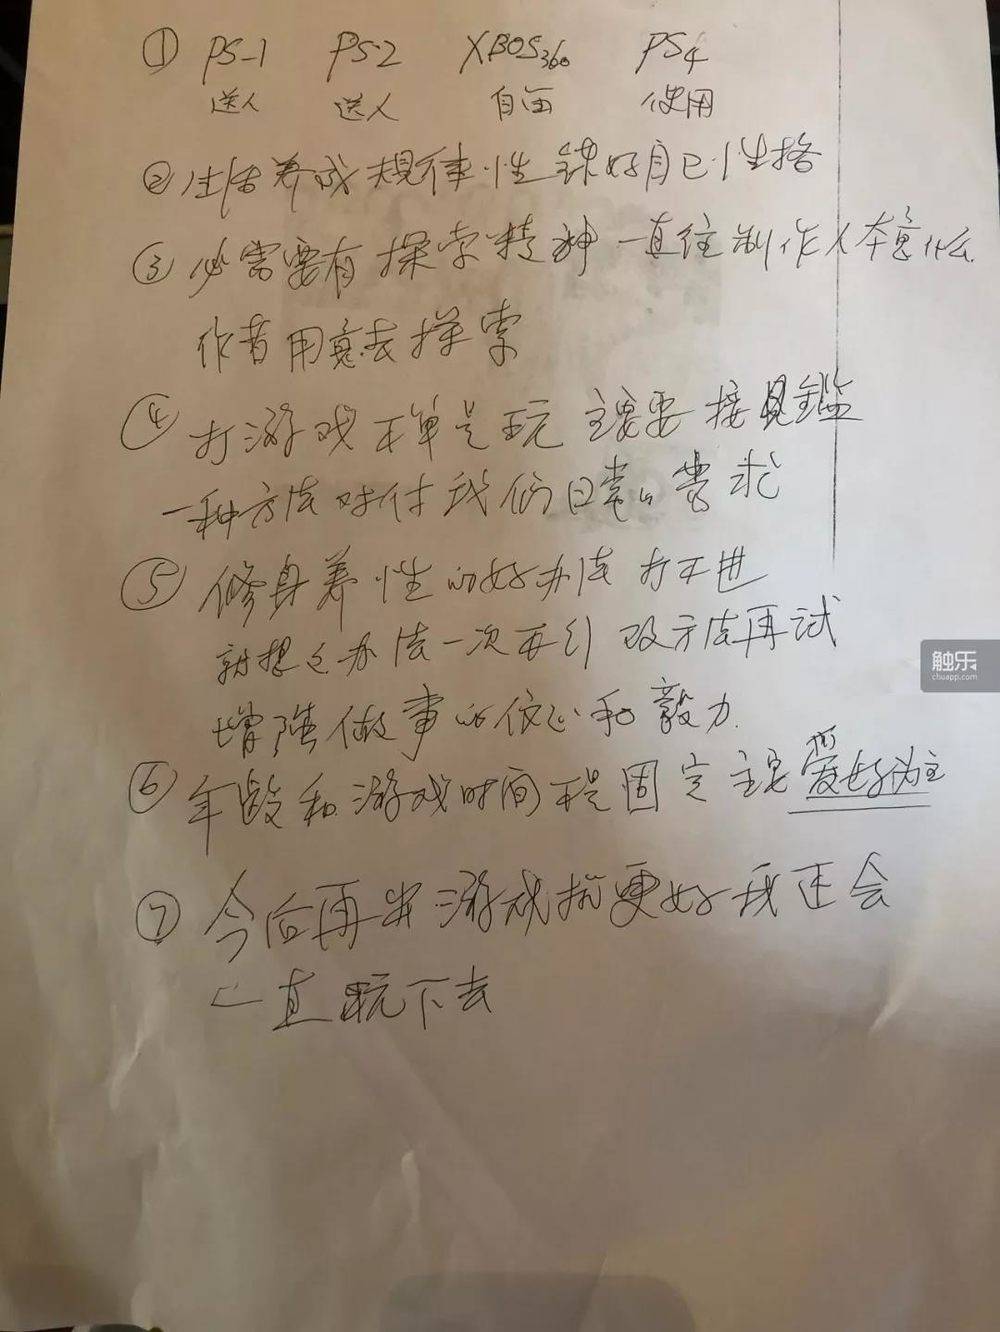 ① PS-1 PS2 XBOS360 PS4
送人 送人 自留 使用
② 生活养成规律性 锻好自己性格
③ 必需要有探索精神 一直往制作人本意什么
作者用意去探索
④ 打游戏不单是玩 主要要接
一种方法对付我们日常的需求
⑤ 修身养性的好办法 打不进
就想之办法一次不行 改方法再试
增强做事的信心和毅力.
⑥ 年龄和游戏时间不是固定 主要爱好为主
⑦ 今后再出游戏机更好我还会
一直玩下去
触乐
chuapp.com